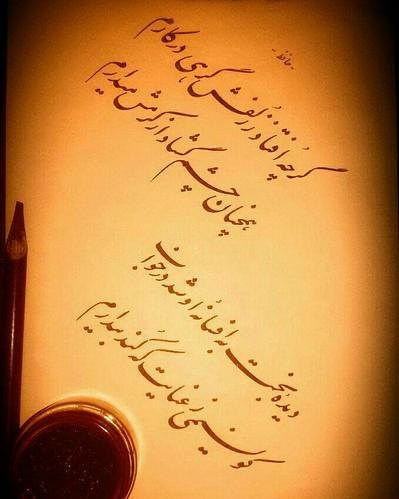 - حافظ -
گرچه افتاد ز زلفش گرهی در کارم
همچنان چشم گشاد از کرمش میدارم
دیده بخت به افسانه او شد در خواب
کو نسیمی ز عنایت که کند بیدارم